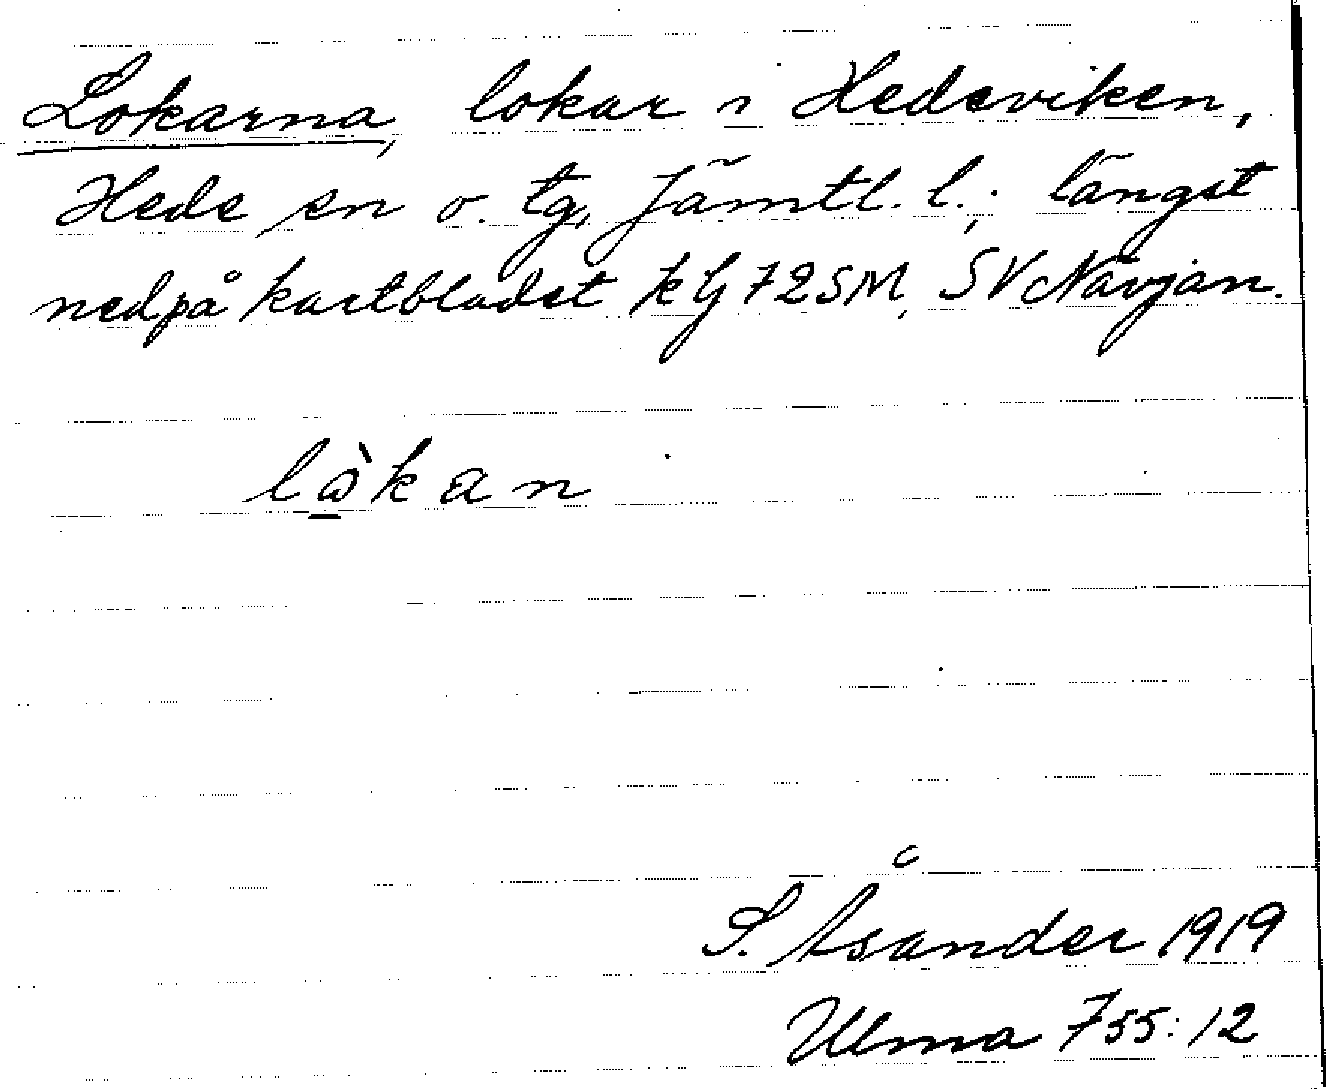 Lokarna, lokar i Hedeviken,
Hede sn o. tg, Jämtl. l.; längst
ned på kartbladet kG 72SM, SV Nävjan.
lòkan
S. Åsander 1919
Ulma 755:12